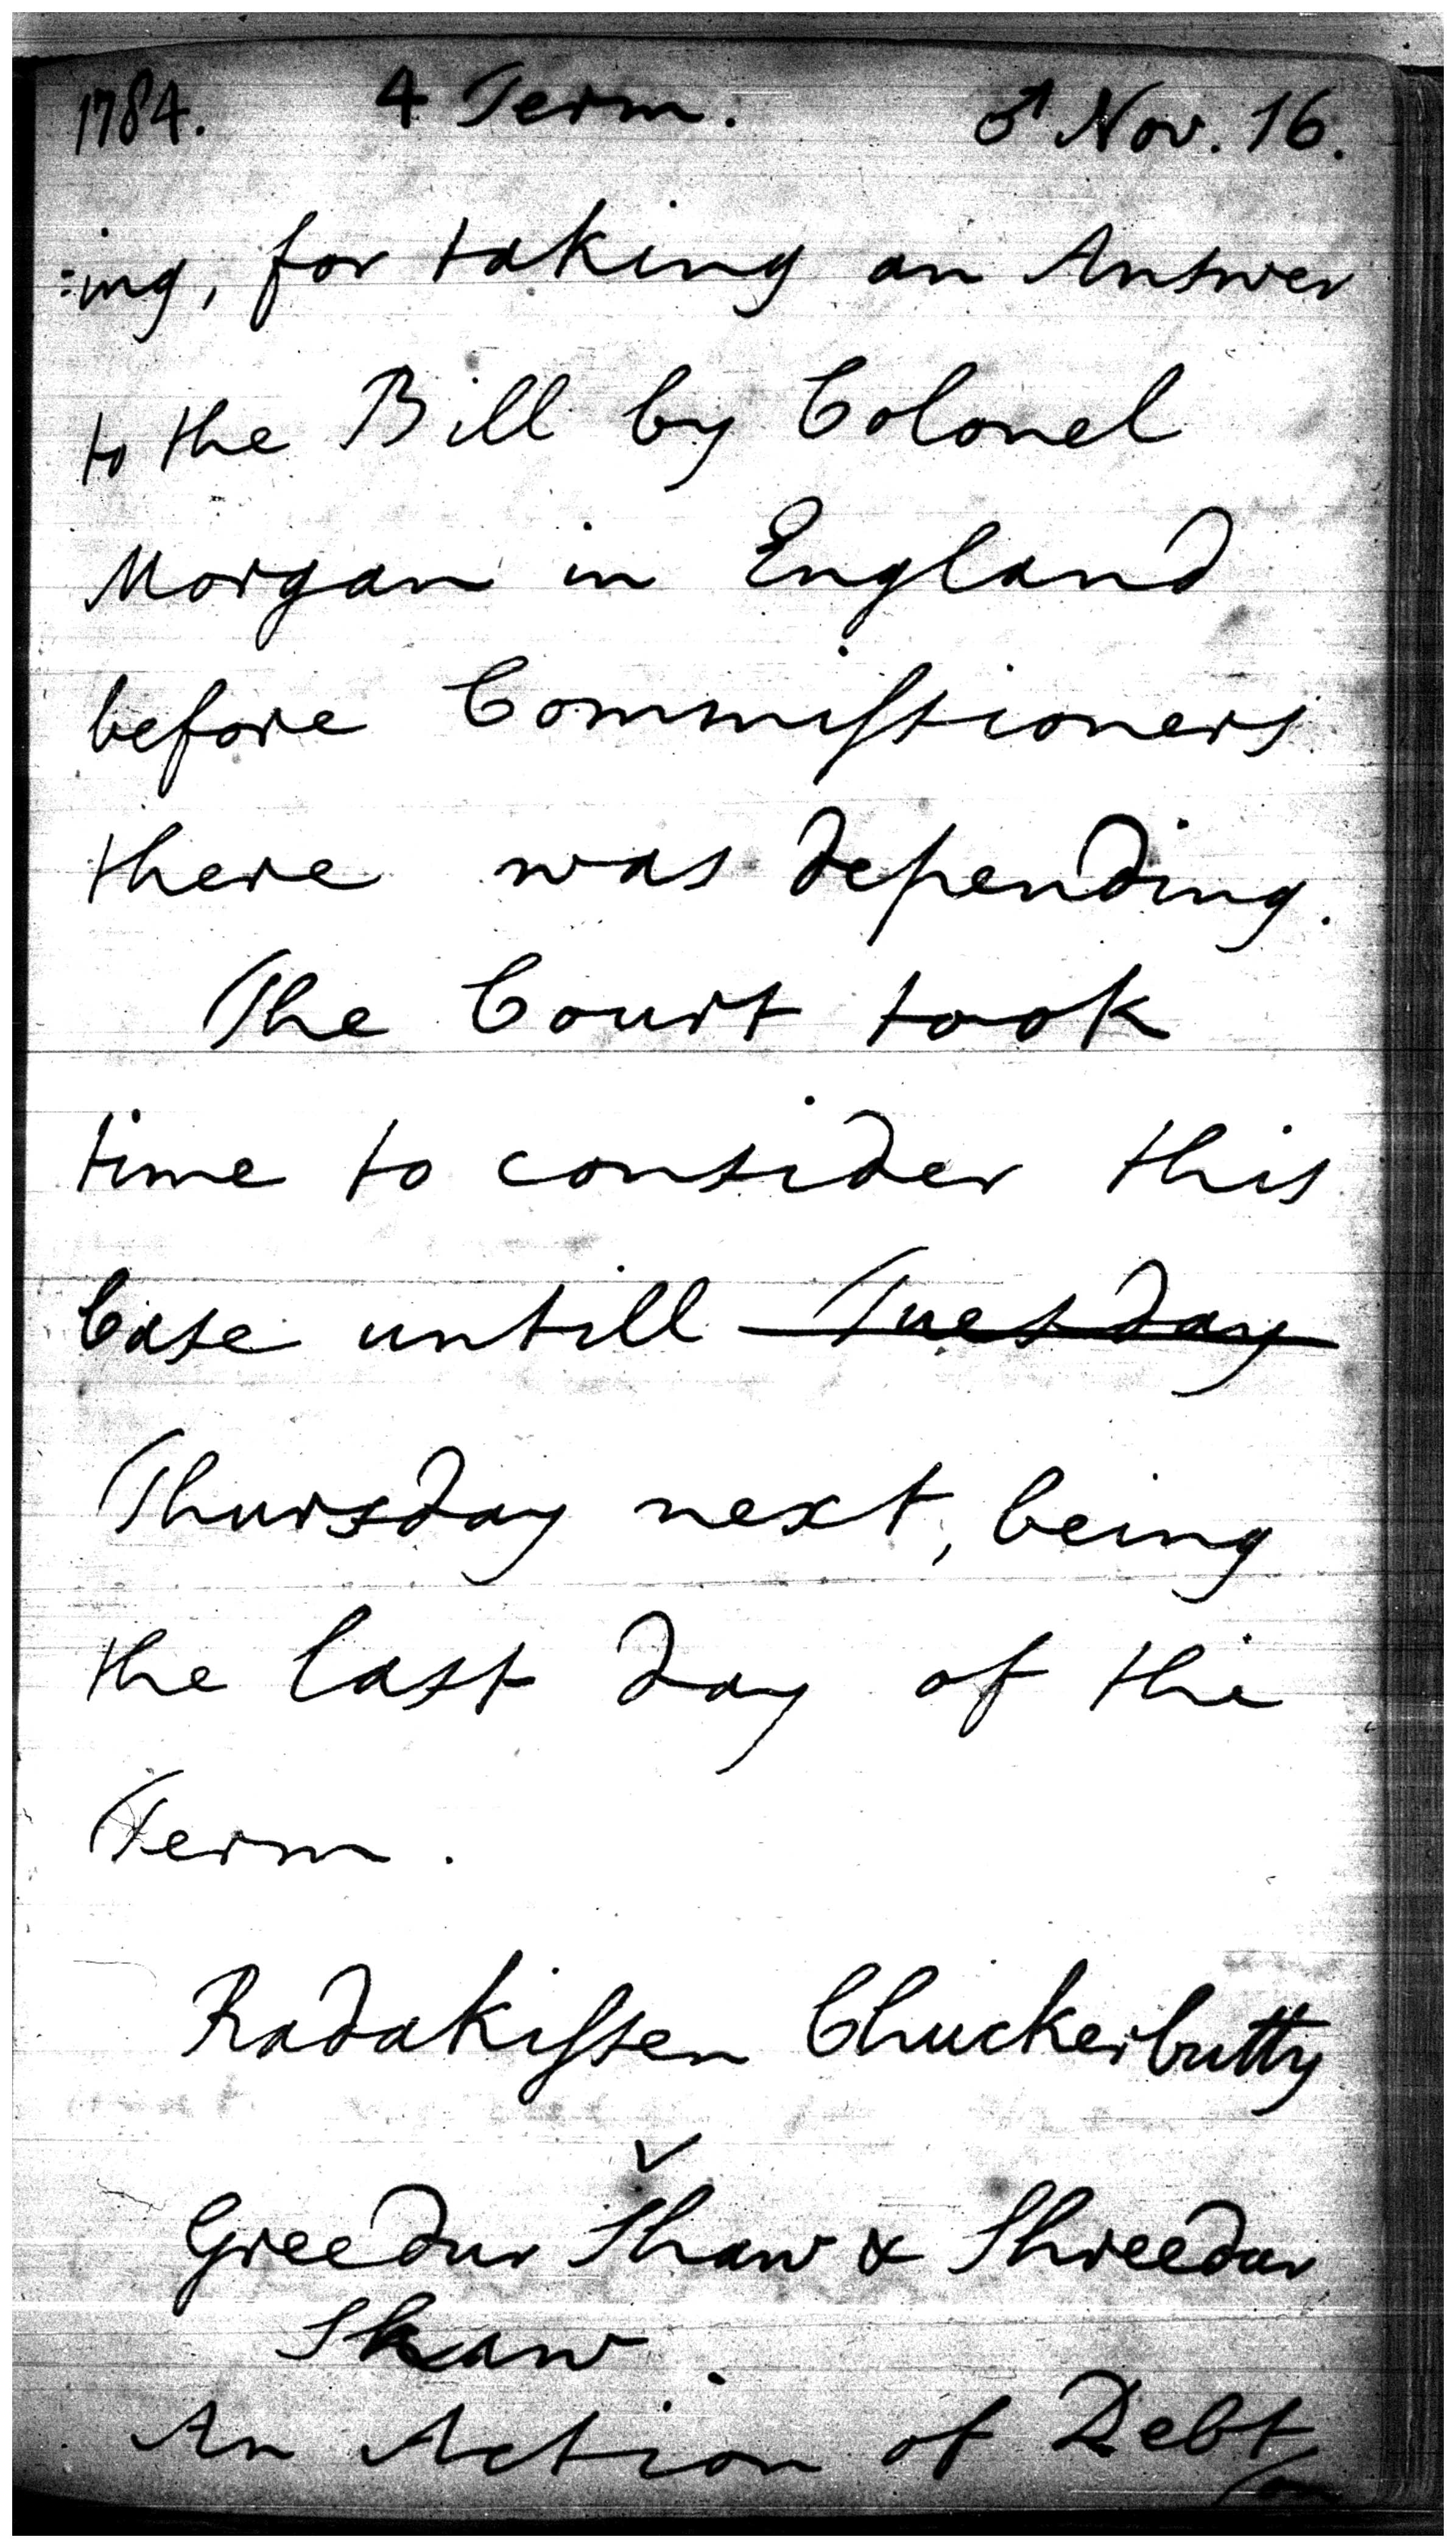 1784. 4 Term. ♂ Nov. 16.
:ing, for taking an Answer
to the Bill by Colonel
Morgan in England
before Commiſsioners
there was depending.
The Court took
time to consider this
Case untill Tuesday
Thursday next, being
the last day of the
Term.
Radakiſsen Chuckerbutty
v
Greedur Shaw & Shreedar
Shaw.
An Action of Debt